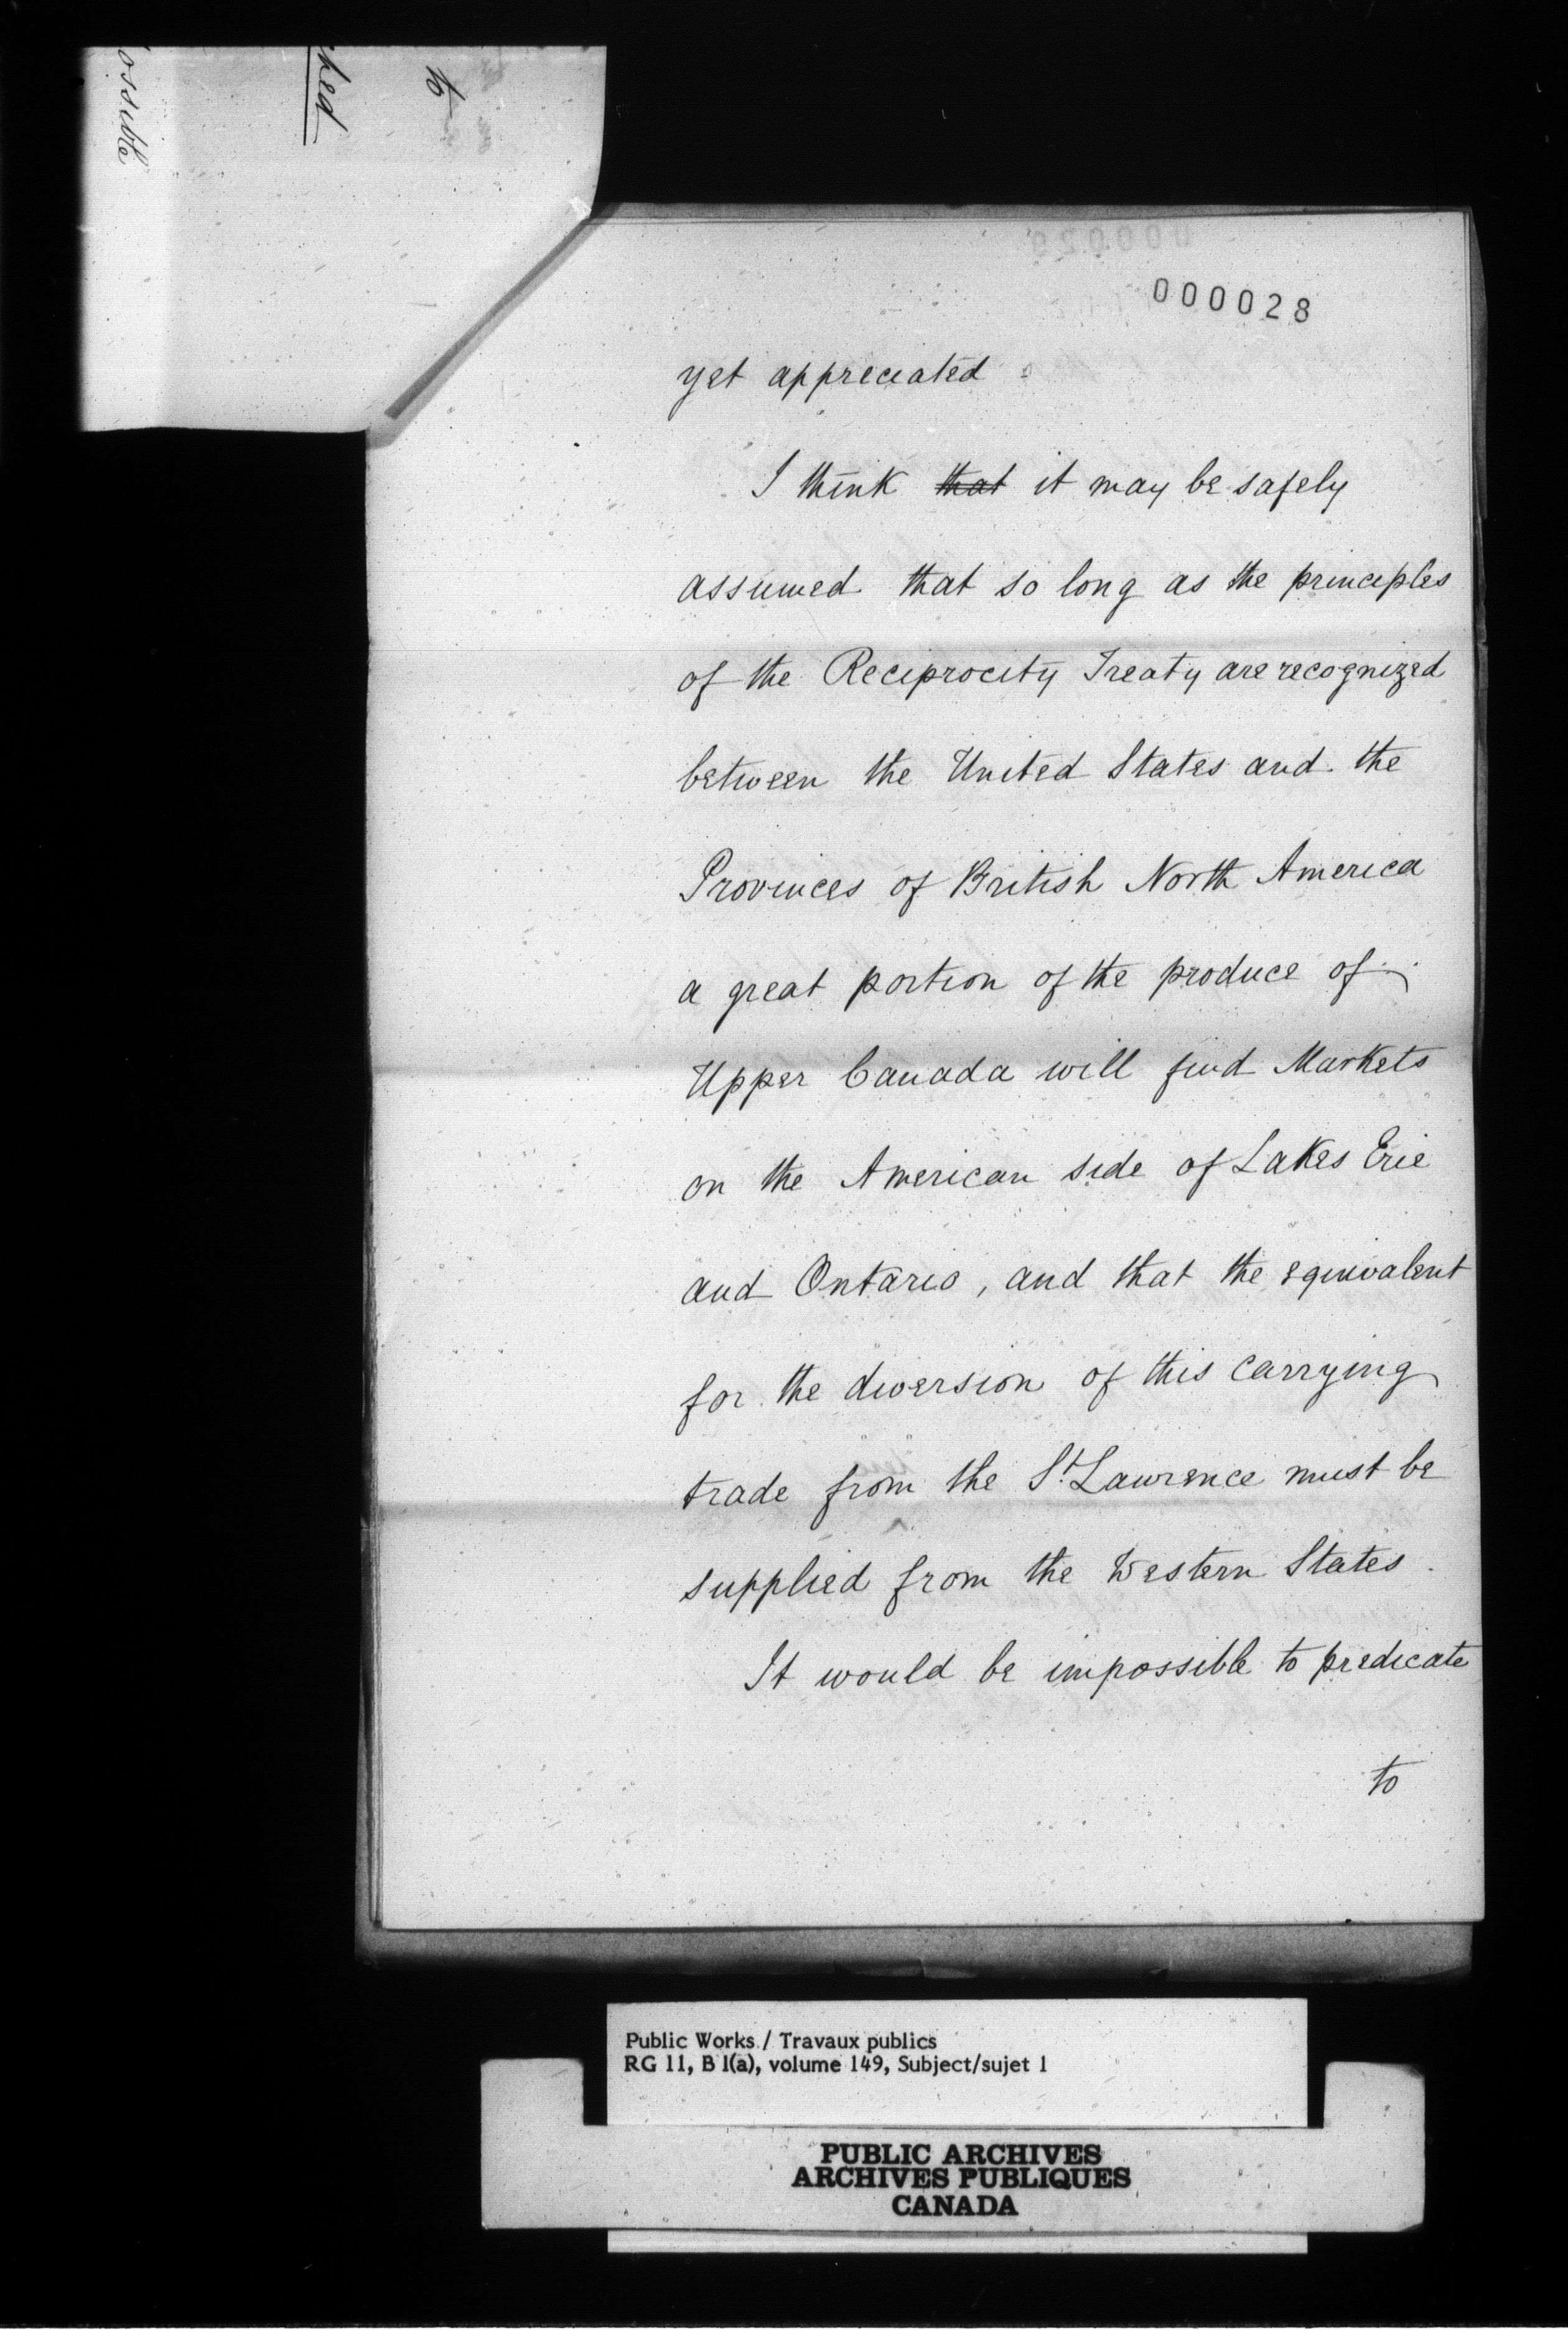 to
hed
ossible
000028
yet appreciated
I think that it may be safely
assumed that so long as the principles
of the Reciprocity Treaty are recognized
between the United States and the
Provinces of British North America
a great portion of the produce of
Upper Canada will find Markets
on the American side of Lakes Erie
and Ontario, and that the equivalent
for the diversion of this carrying
trade from the St. Lawrence must be
supplied from the Western States.
It would be impossible to predicate
to
Public Works / Travaux publics
RG 11, B 1(a), volume 149, Subject/sujet 1
PUBLIC ARCHIVES
ARCHIVES PUBLIQUES
CANADA